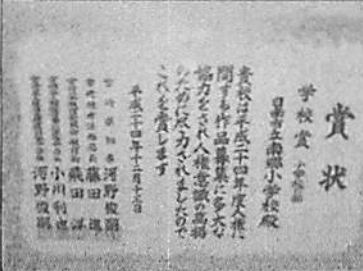 賞状
学校賞 小学校部
日南市立南郷小学校殿
貴校は平成二十四年度人権に
関する作品募集に多大な
協力をされ人権意識の高揚
のために尽力されましたので
これを賞します
平成二十四年十二月十三日
宮崎県知事 河野俊嗣
藤田
飛田 洋
小川利也
河野俊嗣